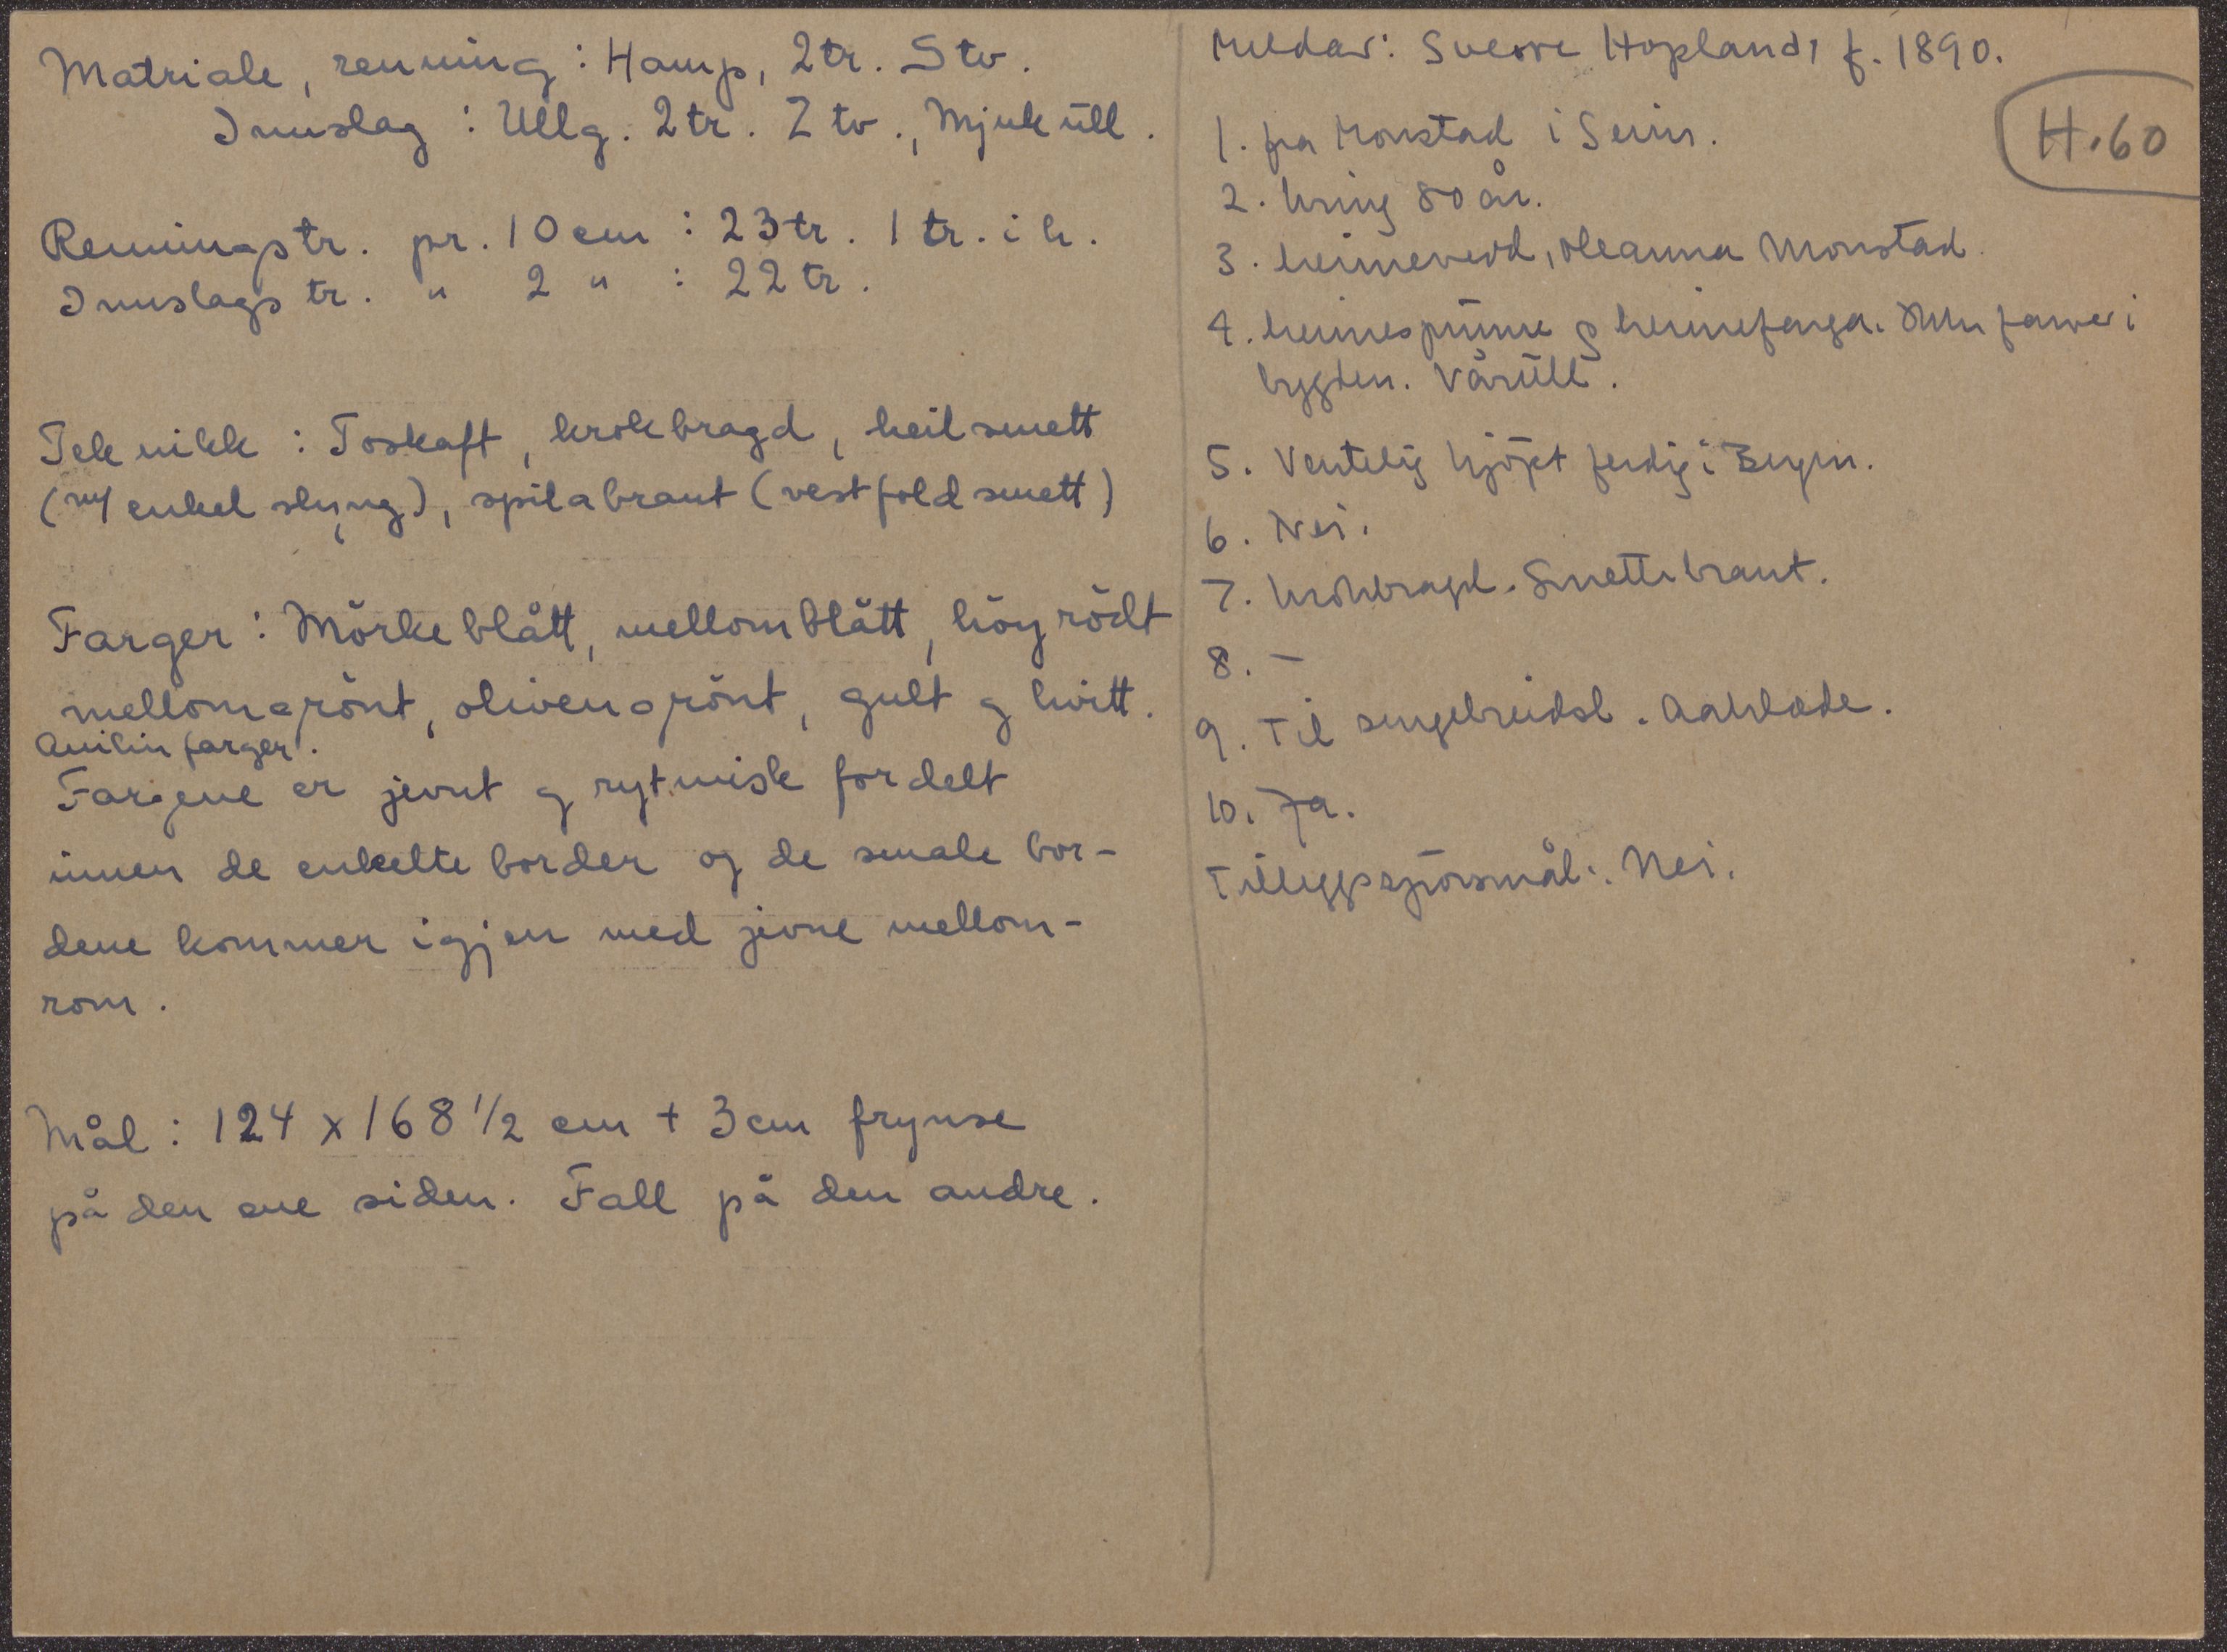 Matriale, renning: Hamp, 2tr. S tv.
Innslag: Ullg. 2tr. Z tv., Mjuk ull.
Renningstr. pr. 10 cm: 23 tr. 1 tr. i h.
Innslagstr. " 2 " : 22 tr.
Teknikk: Toskaft, krokbragd, heilsmett
(m/ enkel slyng), spilabraut (vestfoldsmett)
Farger: Mörkeblått, mellomblått, höyrödt
mellomgrönt, olivengrönt, gult og hvitt.
Anilinfarger.
Fargene er jevnt og rytmisk fordelt
innen de enkelte border og de smale bor-
dene kommer igjen med jevne mellom-
rom.
Mål: 124 x 168 1/2 cm + 3 cm frynse
på den ene siden. Fall på den andre.
Meldar: Sverre Hopland, f. 1890.
H.60
1. fra Monstad i Seim.
2. kring 80 år.
3. heimevevd, Oleanna Monstad.
4. heimespunne og heimefarga. farver i
bygden. Vårull.
5. Ventelig kjöpt ferdig i Bergen.
6. Nei.
7. krokbragd. Smettebraut.
8. –
9. Til sengebreidsl. Aaklæde.
10. Ja.
Tilleggsspörsmål: Nei.